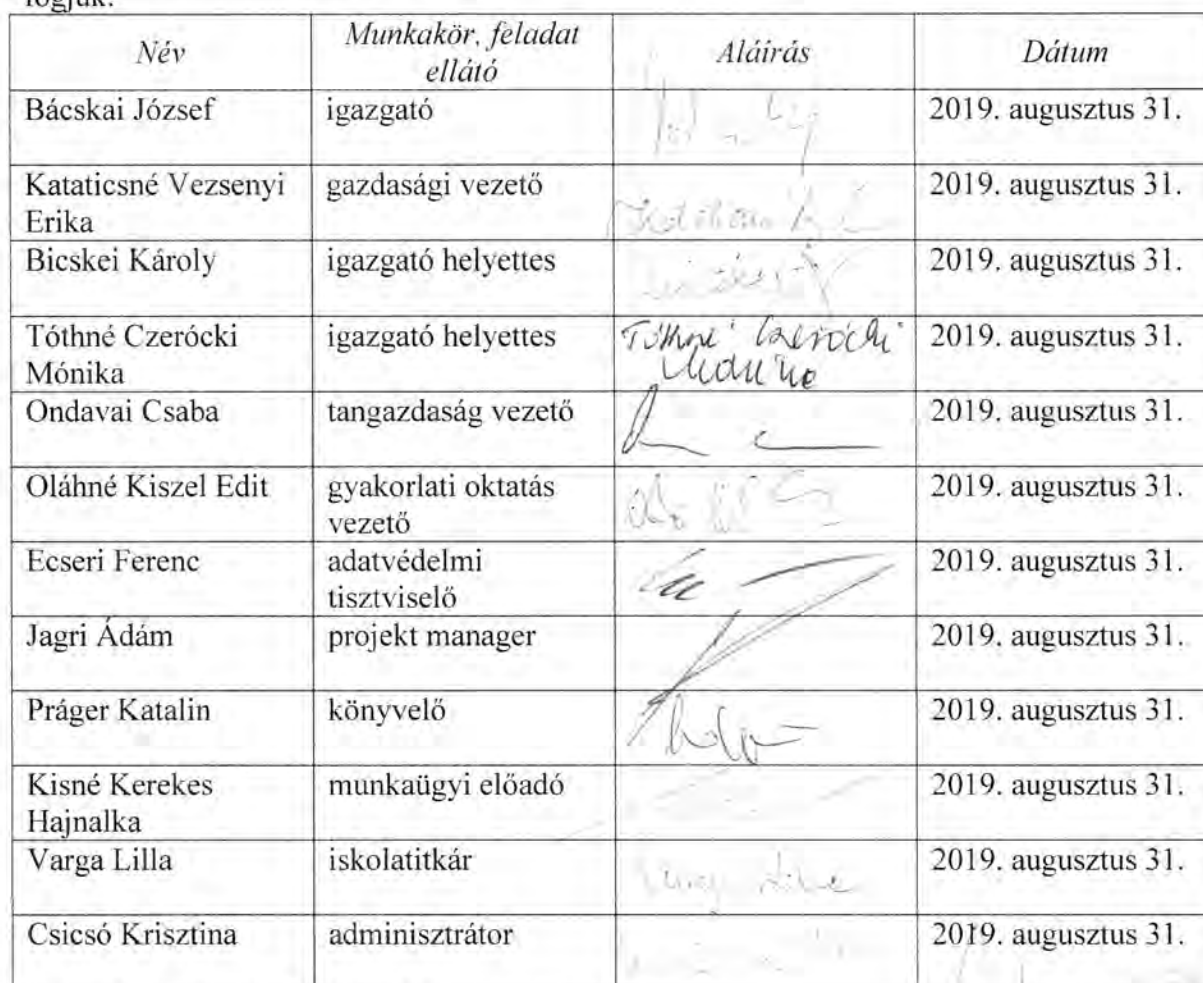 fogjuk.
Név Munkakör, feladat ellátó Aláírás Dátum
Bácskai József igazgató 2019. augusztus 31.
Kataticsné Vezsenyi Erika gazdasági vezető 2019. augusztus 31.
Bicskei Károly igazgató helyettes 2019. augusztus 31.
Tóthné Czerócki Mónika igazgató helyettes Tóthné Czerócki Mónika 2019. augusztus 31.
Ondavai Csaba tangazdaság vezető 2019. augusztus 31.
Oláhné Kiszel Edit gyakorlati oktatás vezető 2019. augusztus 31.
Ecseri Ferenc adatvédelmi tisztviselő 2019. augusztus 31.
Jagri Ádám projekt manager 2019. augusztus 31.
Práger Katalin könyvelő 2019. augusztus 31.
Kisné Kerekes Hajnalka munkaügyi előadó 2019. augusztus 31.
Varga Lilla iskolatitkár 2019. augusztus 31.
Csicsó Krisztina adminisztrátor 2019. augusztus 31.